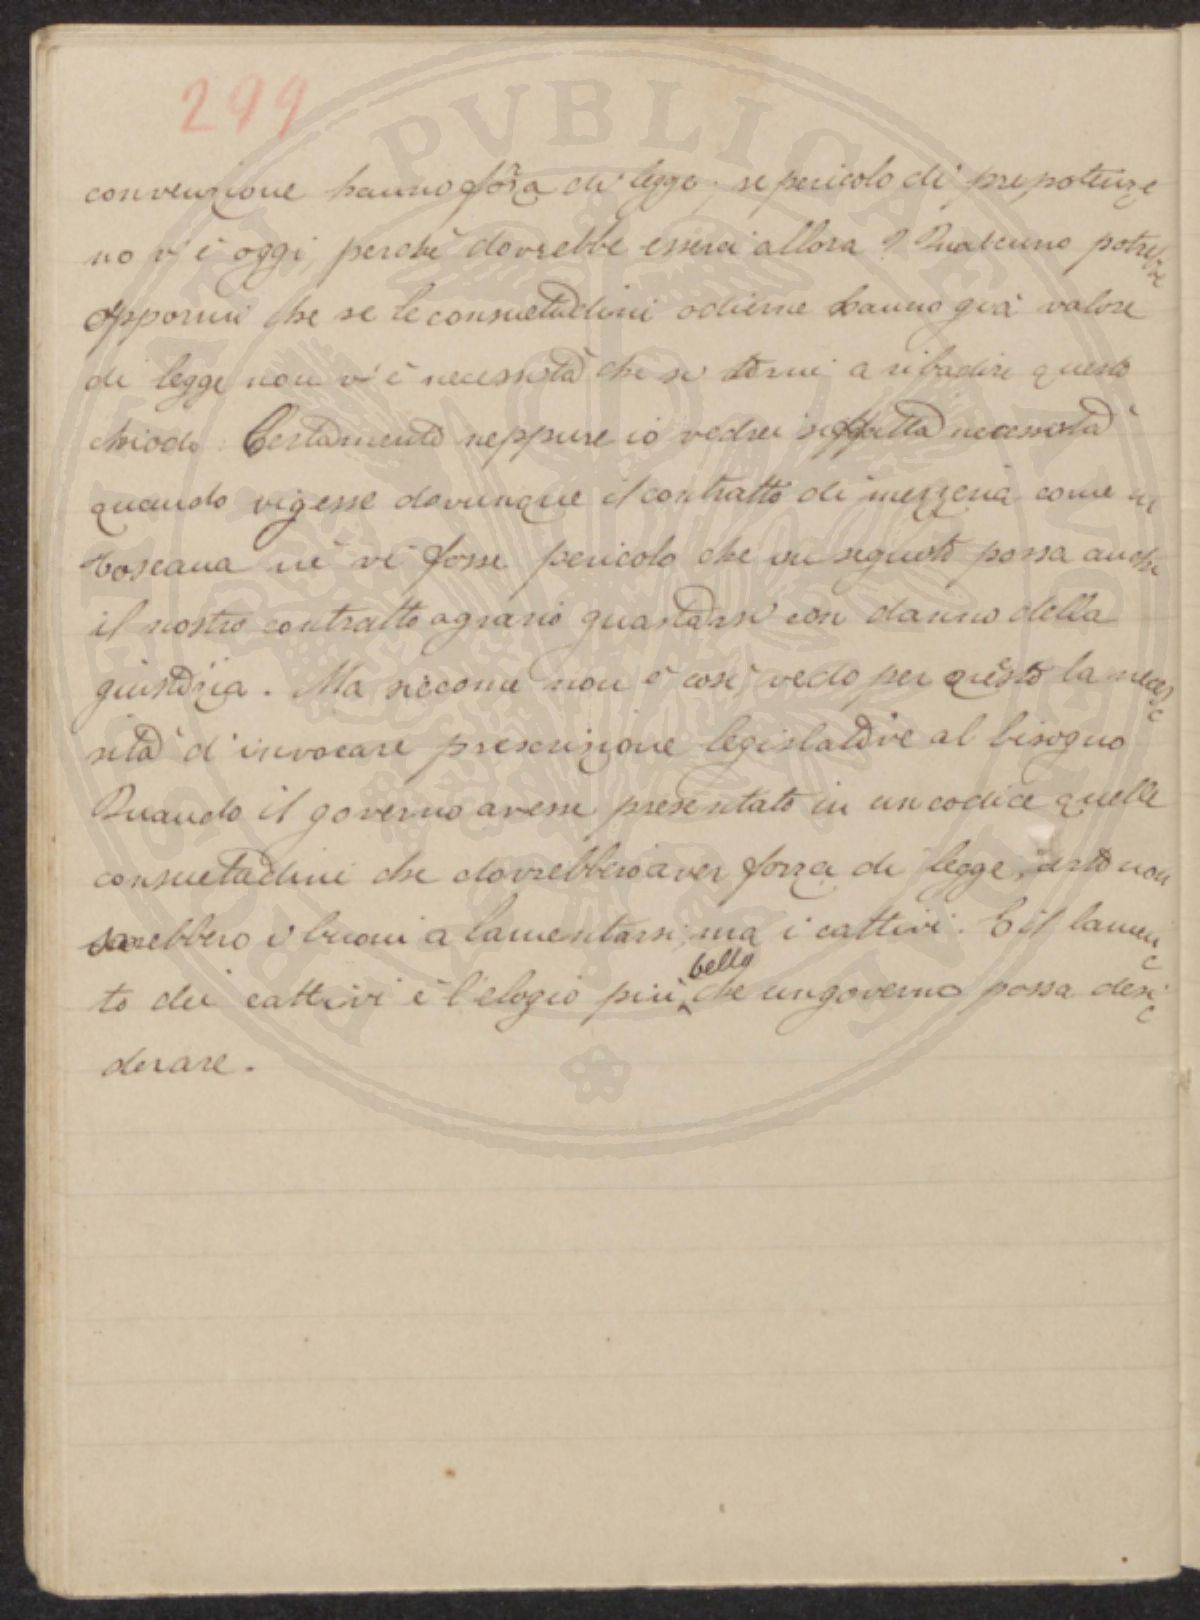 299
convenzione hanno forza di legge; se pericolo di prepotenze
no v'è oggi, perchè dovrebbe esserci allora? Qualcuno potrebbe
oppormi che se le consuetudini odierne hanno già valore
di legge non v'è necessità che si torni a ribadire questo
chiodo. Certamente neppure io vedrei siffatta necessità
quando vigesse dovunque il contratto di mezzeria come in
Toscana nè vi fosse pericolo che in seguito possa anche
il nostro contratto agrario guastarsi con danno della
giustizia. Ma siccome non è così vedo per questo la neces
sità d'invocare prescrizione legislative al bisogno
Quando il governo avesse presentato in un codice quelle
consuetudini che dovrebbero aver forza di legge, certo non
sarebbero i buoni a lamentarsi, ma i cattivi. E il lamen
to dei cattivi è l'elogio più bello che un governo possa desi
derare.
PVBLICAE